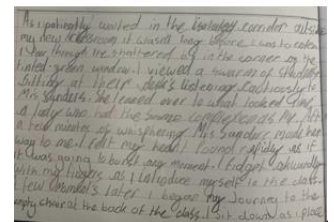 As I patiently waited in the corridor outside
my new classroom it wasn't long before I was to enter.
I saw through the shattered in the corner of the
tinted green window. I viewed a swarm of students
sitting at their desk's listening cautiously to
Mrs Sanders. She leaned over to what looked like
a lady who had the same complexion as me. After
a few minutes of whispering Mrs Sanders made her
way to me. I felt my heart pound rapidly as if
it was going to burst any moment. I fidget awkwardly
with my fingers as I introduce myself to the class.
A few moments later I began my journey to the
empty chair at the back of the class. I sit down as I place